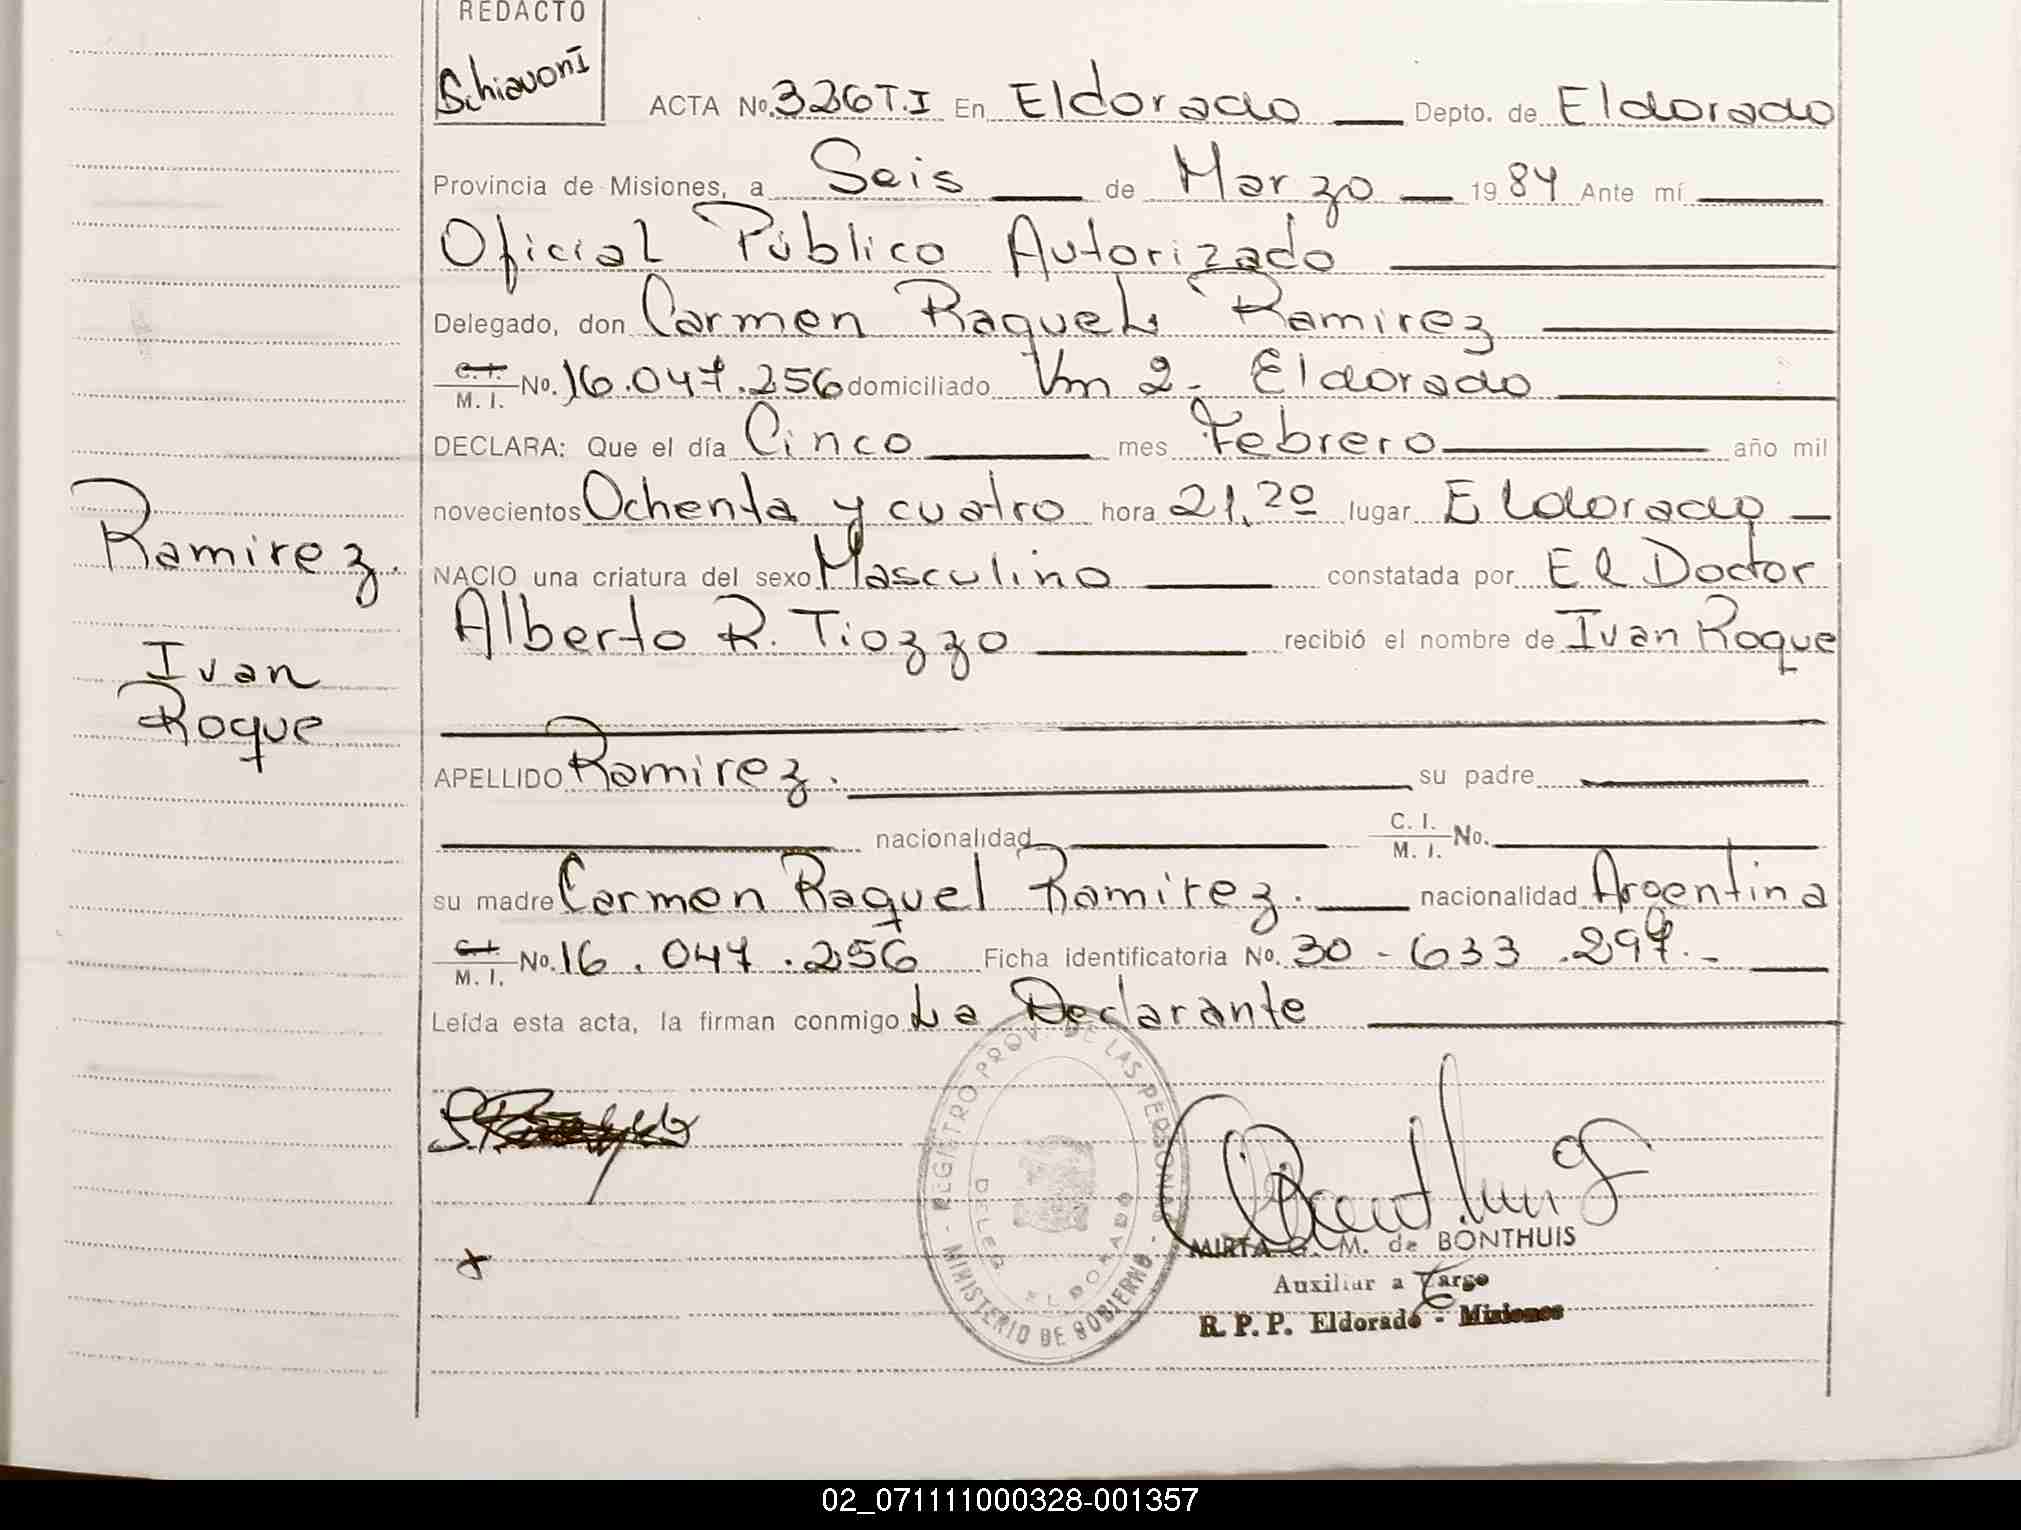 REDACTO
Schiavoni
ACTA No. 326 T.I En Eldorado Depto. de Eldorado
Provincia de Misiones, a Seis de Marzo 1984 Ante mí
Oficial Público Autorizado
Delegado, don Carmen Raquel Ramirez
C.I. M. I. No. 16.047.256 domiciliado Km 2 - Eldorado
DECLARA: Que el día Cinco mes Febrero año mil
novecientos Ochenta y cuatro hora 21,20 lugar Eldorado
NACIO una criatura del sexo Masculino constatada por El Doctor
Alberto R. Tiozzo recibió el nombre de Ivan Roque
Ramirez.
Ivan
Roque
APELLIDO Ramirez. su padre
nacionalidad C. I. M. I. No.
su madre Carmen Raquel Ramirez. nacionalidad Argentina
C.I. M. I. No. 16.047.256 Ficha identificatoria No. 30-633.297.-
Leída esta acta, la firman conmigo La Declarante
REGISTRO PROV. DE LAS PERSONAS - MINISTERIO DE GOBIERNO -
DELEG. ELDORADO
MIRTA G. M. de BONTHUIS
Auxiliar a Cargo
R. P. P. Eldorado - Misiones
02_071111000328-001357